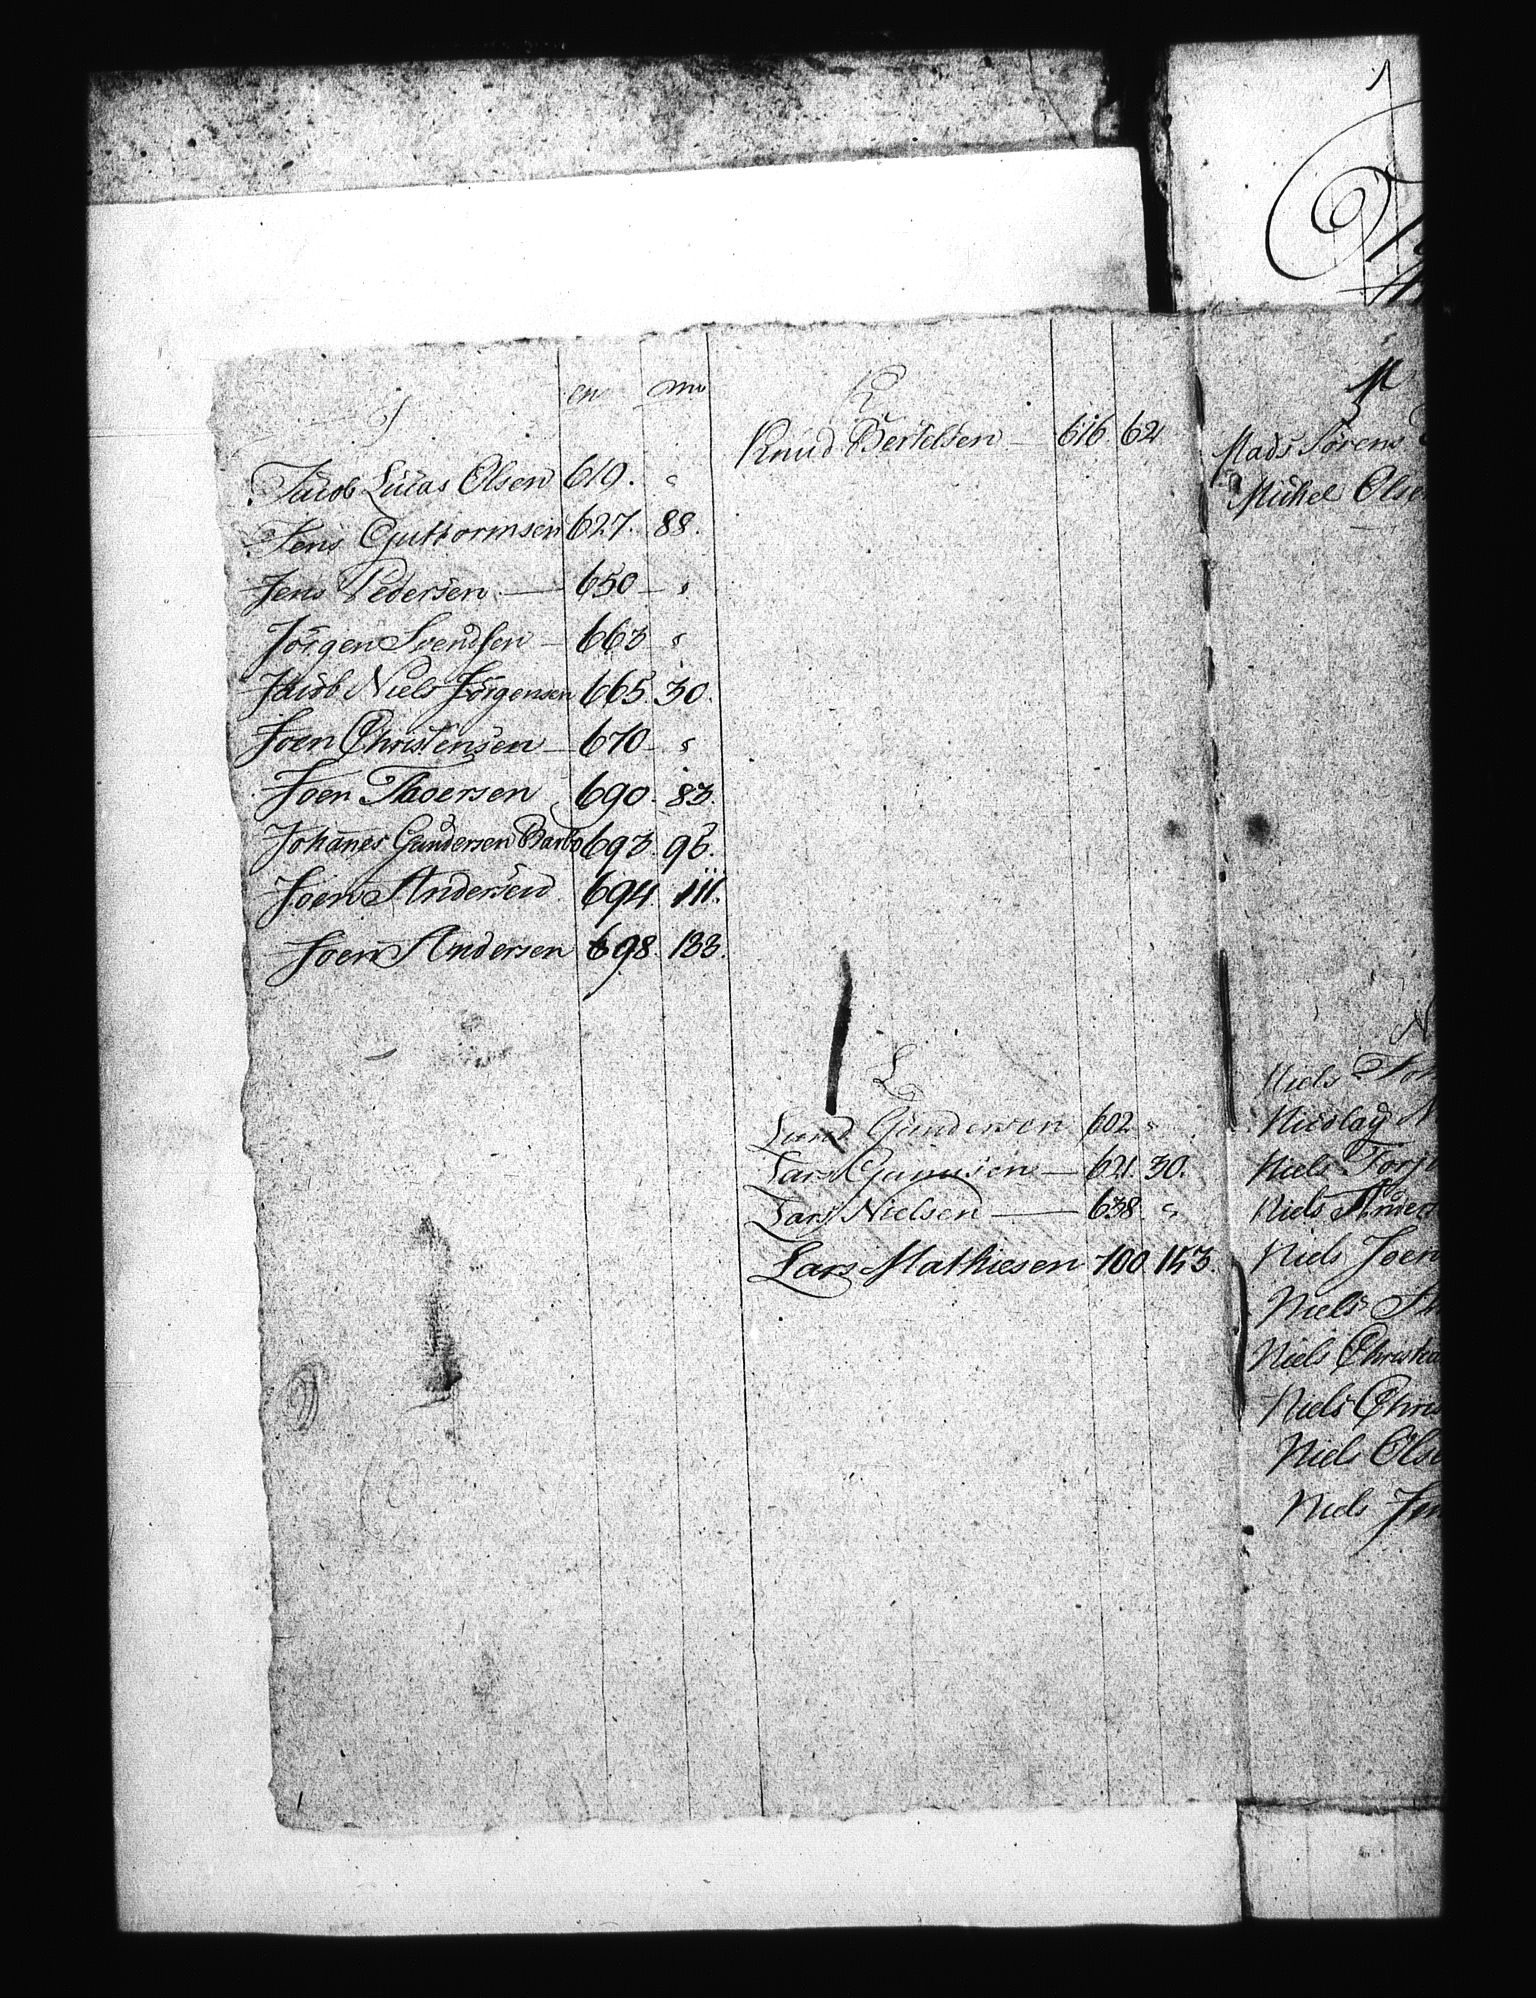 J
Jacob Lucas Olsen 619. "
Jens Guttormsen 627. 88.
Jens Pedersen — 650 — "
Jörgen Svendsen — 663 "
Jacob Niels Jörgensen 665. 30.
Joen Christensen — 670 — "
Joen Thoersen 690. 83.
Johanes Gundersen Barbo 693. 95.
Joen Andersen 694. 111.
Joen Andersen 698. 133.
K
Knud Bertelsen — 616. 62.
L
Lund Gundersen 602 "
Lars — 621. 30.
Lars Nielsen — 638 "
Lars Mathiesen 700. 153.
M
Mads Sörens
Michel Olse
N
Niels
Nicolay N
Niels Torj
Niels Anders
Niels Joen
Niels
Niels Christen
Niels Chris
Niels Olse
Niels Jen